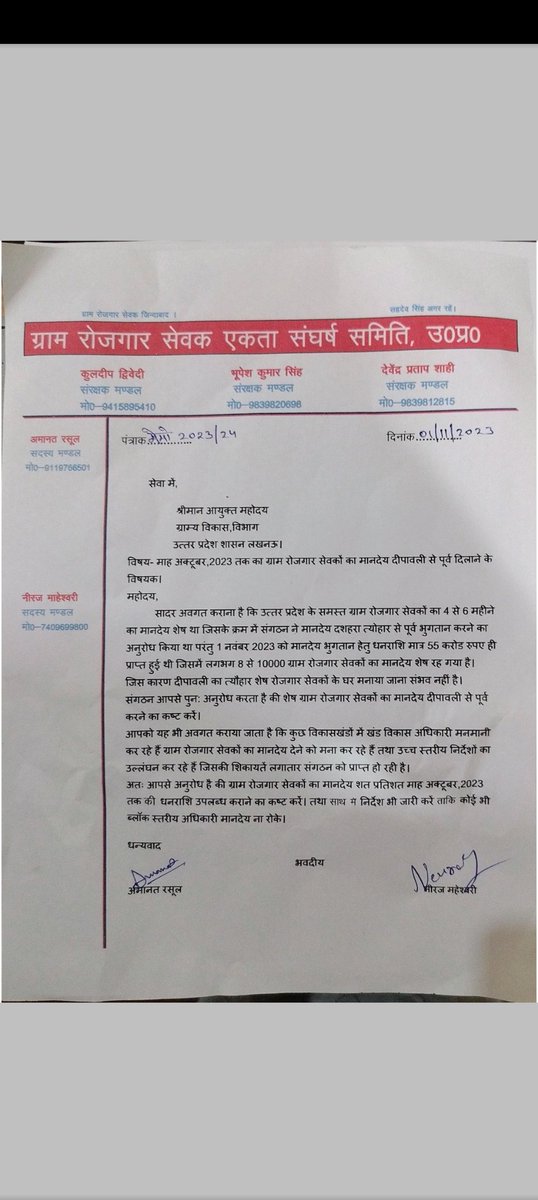 ग्राम रोजगार सेवक जिन्दाबाद ।
सहदेव सिंह अमर रहें।
ग्राम रोजगार सेवक एकता संघर्ष समिति, उ0प्र0
कुलदीप द्विवेदी
संरक्षक मण्डल
मो0–9415895410
भूपेश कुमार सिंह
संरक्षक मण्डल
मो0–9839820698
देवेंद्र प्रताप शाही
संरक्षक मण्डल
मो0–9839812815
अमानत रसूल
सदस्य मण्डल
मो0–9119766501
नीरज माहेश्वरी
सदस्य मण्डल
मो0–7409699800
पंत्राक 2023/24
दिनांक 01/11/2023
सेवा में,
श्रीमान आयुक्त महोदय
ग्राम्य विकास,विभाग
उत्तर प्रदेश शासन लखनऊ।
विषय- माह अक्टूबर,2023 तक का ग्राम रोजगार सेवकों का मानदेय दीपावली से पूर्व दिलाने के
विषयक।
महोदय,
सादर अवगत कराना है कि उत्तर प्रदेश के समस्त ग्राम रोजगार सेवकों का 4 से 6 महीने
का मानदेय शेष था जिसके क्रम में संगठन ने मानदेय दशहरा त्योहार से पूर्व भुगतान करने का
अनुरोध किया था परंतु 1 नवंबर 2023 को मानदेय भुगतान हेतु धनराशि मात्र 55 करोड रुपए ही
प्राप्त हुई थी जिसमें लगभग 8 से 10000 ग्राम रोजगार सेवकों का मानदेय शेष रह गया है।
जिस कारण दीपावली का त्यौहार शेष रोजगार सेवकों के घर मनाया जाना संभव नहीं है।
संगठन आपसे पुन: अनुरोध करता है की शेष ग्राम रोजगार सेवकों का मानदेय दीपावली से पूर्व
करने का कष्ट करें।
आपको यह भी अवगत कराया जाता है कि कुछ विकासखंडों में खंड विकास अधिकारी मनमानी
कर रहे हैं ग्राम रोजगार सेवकों का मानदेय देने को मना कर रहे हैं तथा उच्च स्तरीय निर्देशों का
उल्लंघन कर रहे हैं जिसकी शिकायतें लगातार संगठन को प्राप्त हो रही है।
अतः आपसे अनुरोध है की ग्राम रोजगार सेवकों का मानदेय शत प्रतिशत माह अक्टूबर,2023
तक की धनराशि उपलब्ध कराने का कष्ट करें। तथा साथ में निर्देश भी जारी करें ताकि कोई भी
ब्लॉक स्तरीय अधिकारी मानदेय ना रोके।
धन्यवाद
भवदीय
अमानत रसूल
नीरज माहेश्वरी